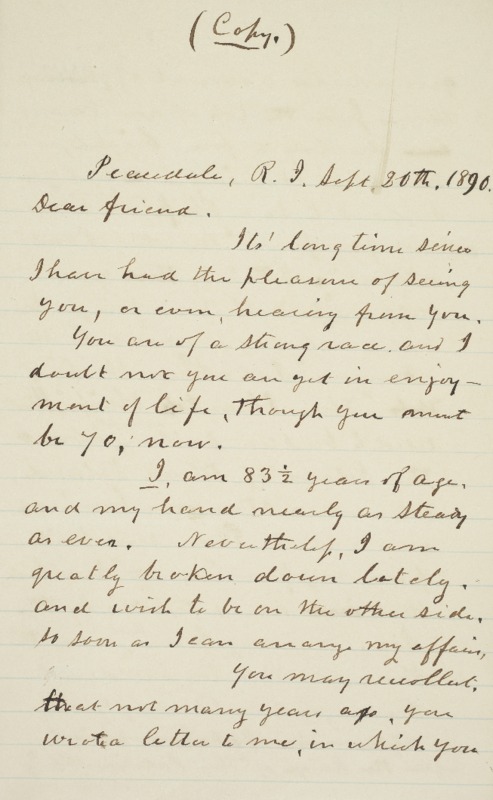 (Copy.)
Peacedale, R. I. Sept 20th. 1890.
Dear friend.
Its' long time since
I have had the pleasure of seeing
you, or even, hearing from you.
You are of a strong race. and I
doubt not you are yet in enjoy-
ment of life, though you must
be 70, now.
I, am 83 1/2 years of age.
and my hand nearly as steady
as ever. Nevertheless, I am
greatly broken down lately.
and wish to be on the other side.
so soon as I can arrange my affairs,
You may recollect.
that not many years ago, you
wrote a letter to me, in which you